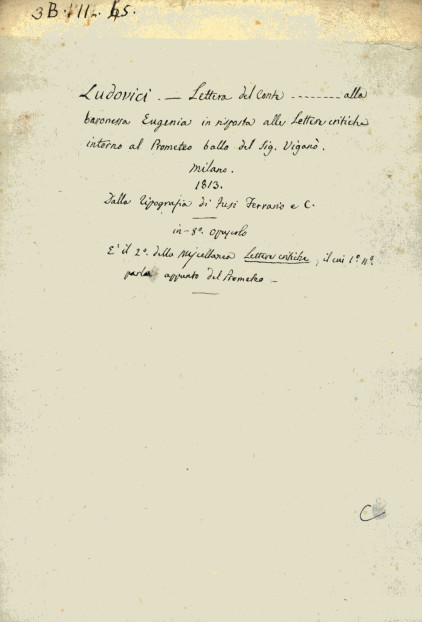 3B. III. 45.
Ludovici. — Lettera del Conte -------- alla
baronessa Eugenia in risposta alle Lettere critiche
intorno al Prometeo ballo del Sig. Viganò.
Milano.
1813.
Dalla Tipografia di Fusi Ferrario e C.
in-8º. opuscolo
E' il 2º. della Miscellanea Lettere critiche, il cui 1º. nº.
parla appunto del Prometeo —
C